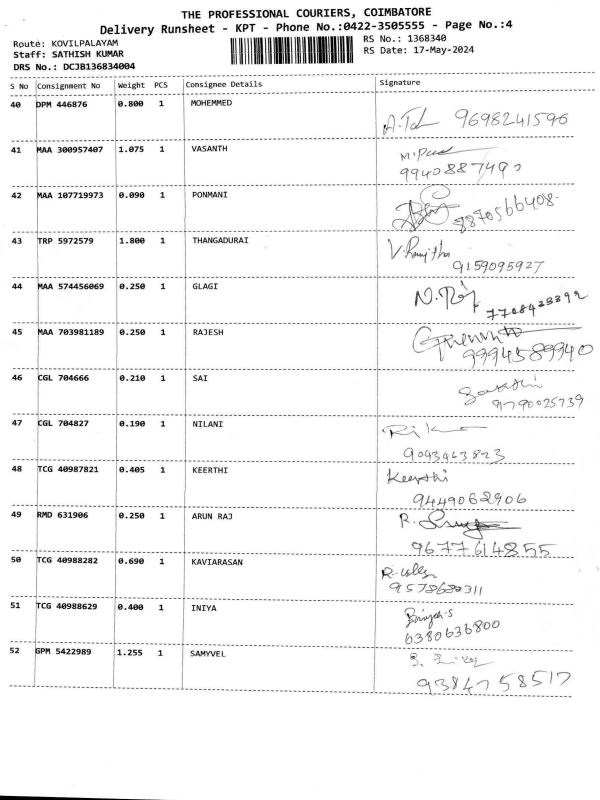 THE PROFESSIONAL COURIERS, COIMBATORE
Delivery Runsheet - KPT - Phone No.:0422-3505555 - Page No.:4
Route: KOVILPALAYAM RS No.: 1368340
Staff: SATHISH KUMAR RS Date: 17-May-2024
DRS No.: DCJB136834004
S No Consignment No Weight PCS Consignee Details Signature
40 DPM 446876 0.800 1 MOHEMMED
9698241596
41 MAA 300957407 1.075 1 VASANTH
42 MAA 107719973 0.090 1 PONMANI
8870566408
43 TRP 5972579 1.800 1 THANGADURAI
9159095927
44 MAA 574456069 0.250 1 GLAGI
45 MAA 703981189 0.250 1 RAJESH
9994589940
46 CGL 704666 0.210 1 SAI
9790025739
47 CGL 704827 0.190 1 NILANI
9043463823
48 TCG 40987821 0.405 1 KEERTHI
Keerthi
9449062906
49 RMD 631906 0.250 1 ARUN RAJ
9677614855
50 TCG 40988282 0.690 1 KAVIARASAN
51 TCG 40988629 0.400 1 INIYA
6380636800
52 GPM 5422989 1.255 1 SAMYVEL
9384758517